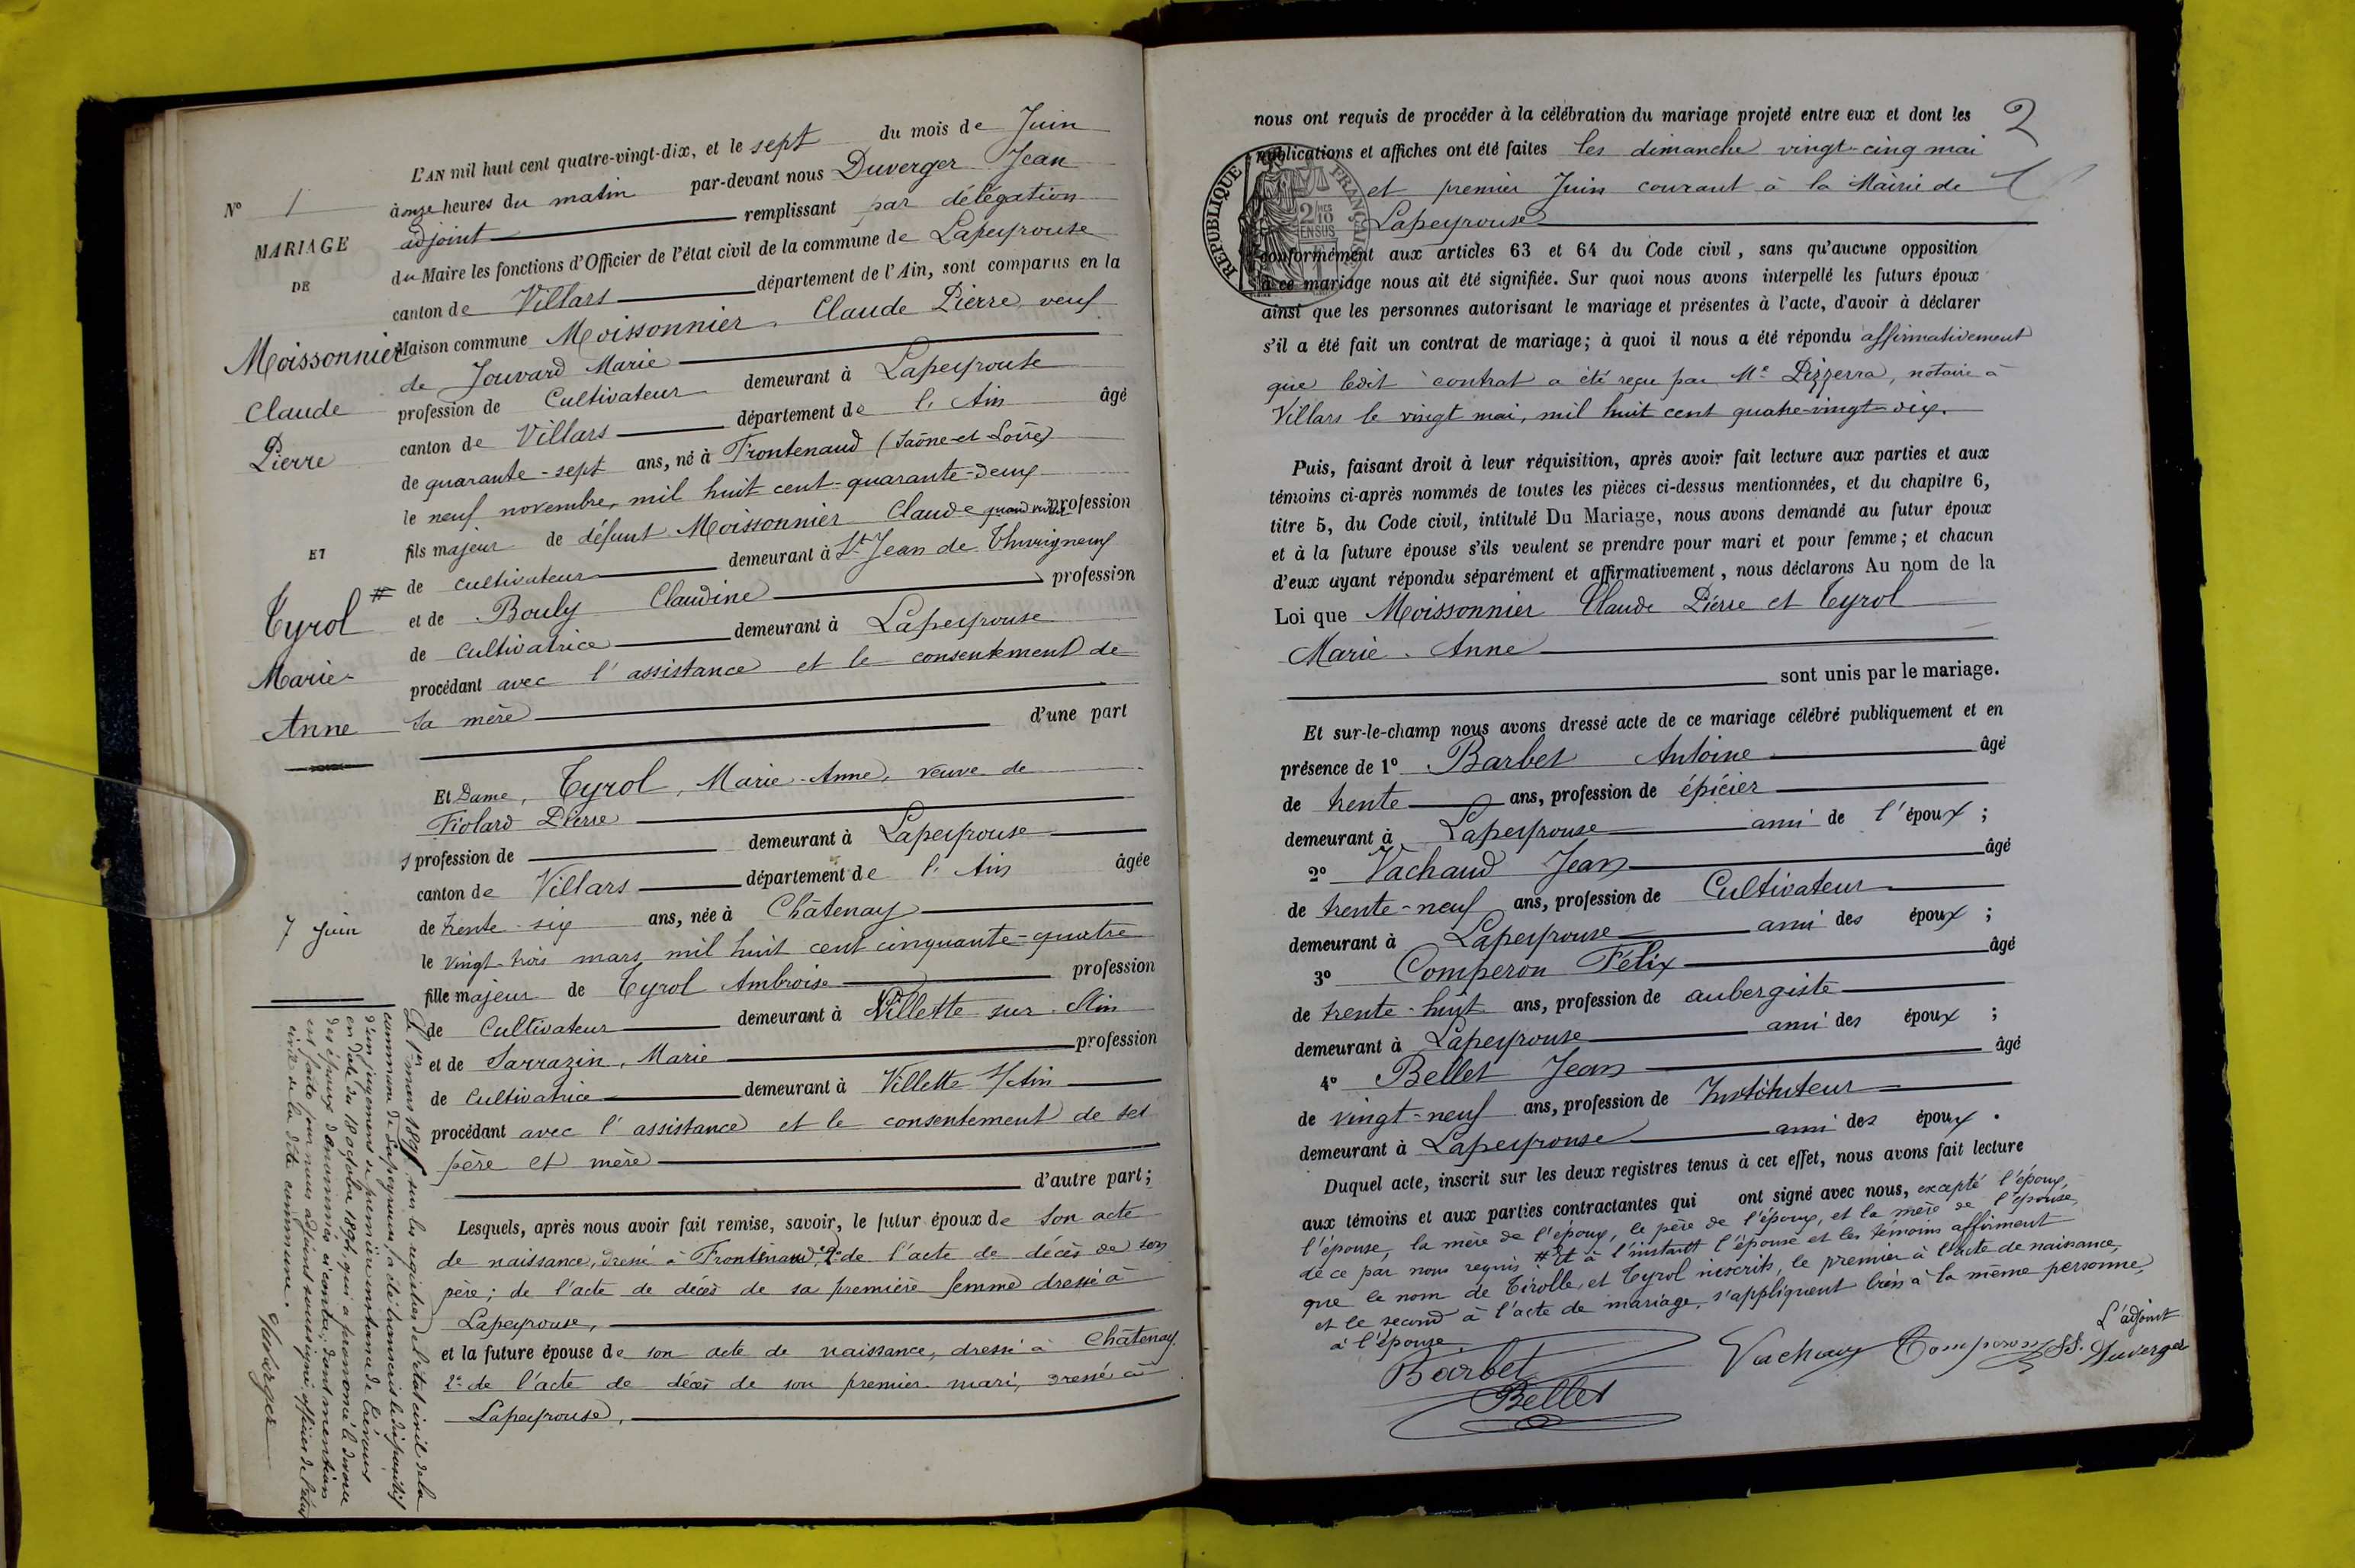 L'AN mil huit cent quatre-vingt-dix, et le sept du mois de Juin
à onze heures du matin par-devant nous Duverger Jean
adjoint remplissant par délégation
du Maire les fonctions d'Officier de l'état civil de la commune de Lapeyrouse
canton de Villars département de l'Ain, sont comparus en la
Maison commune Moissonnier Claude Pierre, veuf
de Jouvard Marie
profession de Cultivateur demeurant à Lapeyrouse
canton de Villars département de l'Ain âgé
de quarante-sept ans, né à Frontenaud (Saône-et-Loire)
le neuf novembre, mil huit cent-quarante-deux
fils majeur de défunt Moissonnier Claude quand vivait profession
de cultivateur demeurant à St Jean de Thurigneux
# et de Bouly Claudine profession
de cultivatrice demeurant à Lapeyrouse
procédant avec l'assistance et le consentement de
sa mère
d'une part
Et Dame, Tyrol, Marie-Anne, veuve de
Fiolard Pierre
s profession de demeurant à Lapeyrouse
canton de Villars département de l'Ain âgée
de trente-six ans, née à Châtenay
le vingt-trois mars mil huit cent cinquante-quatre
fille majeur de Tyrol Ambroise profession
de Cultivateur demeurant à Villette sur Ain
et de Sarrazin, Marie profession
de Cultivatrice demeurant à Villette s/Ain
procédant avec l'assistance et le consentement de ses
père et mère
d'autre part;
Lesquels, après nous avoir fait remise, savoir, le futur époux de son acte
de naissance, dressé à Frontenaud, 2º de l'acte de décès de son
père; de l'acte de décès de sa première femme dressé à
Lapeyrouse,
et la future épouse de son acte de naissance, dressé à Châtenay.
2º de l'acte de décès de son premier mari, dressé à
Lapeyrouse,
Nº 1
MARIAGE
DE
Moissonnier
Claude
Pierre
ET
Tyrol
Marie-
Anne
7 Juin
Le 1er mars 1895 sur les registres de l'état civil de la
commune de Lapeyrouse, a été transcrit le dispositif
d'un jugement de première instance de Trévoux
en date du 18 octobre 1894, qui a prononcé le divorce
des époux dénommés ci-contre; dont mention
est faite par nous adjoint soussigné officier de l'état
civil de la dite commune.
Duverger
2
nous ont requis de procéder à la célébration du mariage projeté entre eux et dont les
publications et affiches ont été faites les dimanche vingt-cinq mai
et premier Juin courant à la Mairie de
Lapeyrouse
RÉPUBLIQUE FRANÇAISE
2/10
EN SUS
conformément aux articles 63 et 64 du Code civil, sans qu'aucune opposition
à ce mariage nous ait été signifiée. Sur quoi nous avons interpellé les futurs époux
ainsi que les personnes autorisant le mariage et présentes à l'acte, d'avoir à déclarer
s'il a été fait un contrat de mariage; à quoi il nous a été répondu affirmativement
que ledit contrat a été reçu par Me Pizzerra, notaire à
Villars le vingt mai, mil huit cent quatre-vingt-dix.
Puis, faisant droit à leur réquisition, après avoir fait lecture aux parties et aux
témoins ci-après nommés de toutes les pièces ci-dessus mentionnées, et du chapitre 6,
titre 5, du Code civil, intitulé Du Mariage, nous avons demandé au futur époux
et à la future épouse s'ils veulent se prendre pour mari et pour femme; et chacun
d'eux ayant répondu séparément et affirmativement, nous déclarons Au nom de la
Loi que Moissonnier Claude Pierre et Tyrol
Marie-Anne
sont unis par le mariage.
Et sur-le-champ nous avons dressé acte de ce mariage célébré publiquement et en
présence de 1º Barbet Antoine âgé
de trente ans, profession de épicier
demeurant à Lapeyrouse ami de l'époux;
2º Vachaud Jean âgé
de trente-neuf ans, profession de Cultivateur
demeurant à Lapeyrouse ami des époux;
3º Comperon Félix âgé
de trente-huit ans, profession de aubergiste
demeurant à Lapeyrouse ami des époux;
4º Bellet Jean âgé
de vingt-neuf ans, profession de Instituteur
demeurant à Lapeyrouse ami des époux.
Duquel acte, inscrit sur les deux registres tenus à cet effet, nous avons fait lecture
aux témoins et aux parties contractantes qui ont signé avec nous, excepté l'époux,
l'épouse, la mère de l'époux, le père de l'époux, et la mère de l'épouse,
de ce par nous requis. # Et à l'instant l'épouse et les témoins affirment
que le nom de Tirolle, et Tyrol inscrits, le premier à l'acte de naissance,
et le second à l'acte de mariage, s'appliquent bien à la même personne,
à l'épouse.
L'adjoint
Barbet Vachaud Comperon SS. Duverger
Bellet